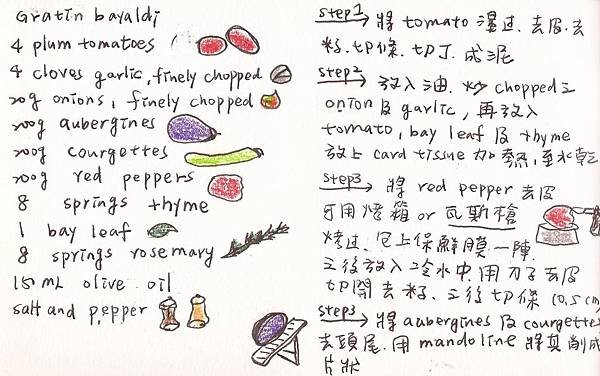 Gratin bayaldi
4 plum tomatoes
4 cloves garlic, finely chopped
70g onions, finely chopped
200g aubergines
200g courgettes
200g red peppers
8 springs thyme
1 bay leaf
8 springs rosemary
150 mL olive oil
salt and pepper
step1 → 將 tomato 燙過. 去皮. 去
籽. 切條. 切丁. 成泥
step2 → 放入油. 炒 chopped之
onion 及 garlic, 再放入
tomato, bay leaf 及 thyme
放上 card tissue 加熱, 至水乾
step3 → 將 red pepper 去皮
可用烤箱 or 瓦斯槍
烤過. 包上保鮮膜一陣.
之後放入冷水中. 用刀子去皮
切開去籽. 之後切條 (0.5cm)
step3 → 將 aubergines 及 courgettes
去頭尾. 用 mandoline 將其削成
片狀